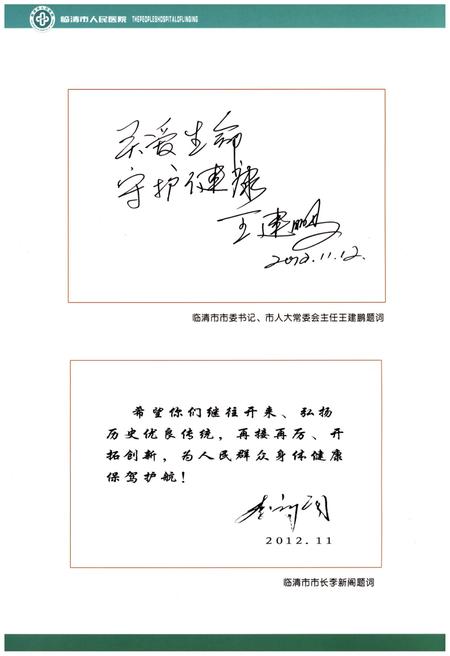 临清市人民医院 THEPEOPLESHOSPITALOFLINQING
关爱生命
守护健康
王建鹏
2012.11.12.
临清市市委书记、市人大常委会主任王建鹏题词
希望你们继往开来、弘扬
历史优良传统，再接再厉、开
拓创新，为人民群众身体健康
保驾护航！
李新阁
2012.11
临清市市长李新阁题词